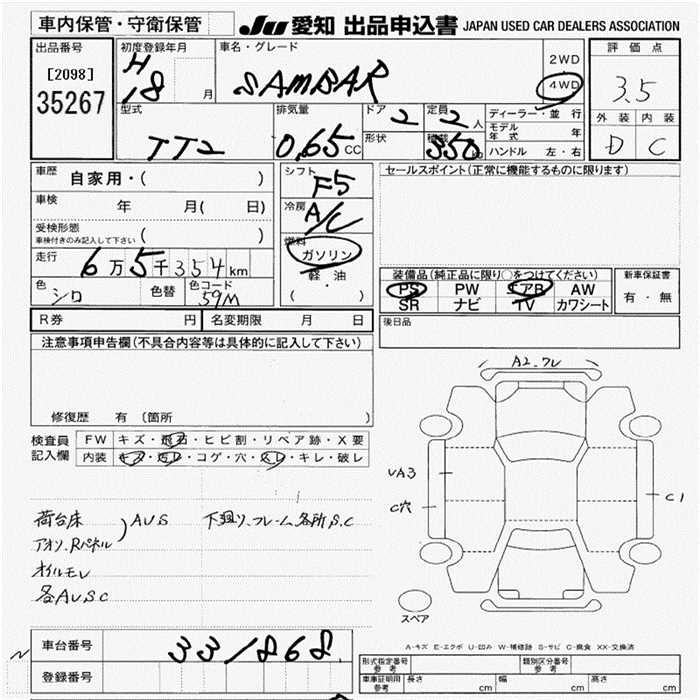 車内保管・守衛保管
JU 愛知 出品申込書 JAPAN USED CAR DEALERS ASSOCIATION
出品番号
[2098]
35267
初度登録年月
H
18 月
車名・グレード
SAMBAR
2WD
4WD
評価点
3.5
外装 内装
D C
型式
TT2
排気量
0.65 CC
ドア 2
形状
定員 2 人
積載 350 kg
ディーラー・並行
モデル年式 年
ハンドル 左・右
車歴
自家用・( )
車検 年 月( 日)
受検形態
車検付きのみ記入して下さい ( )
走行 6万5千354km
色 シロ
色替
色コード 59M
シフト F5
冷房 A/C
燃料
ガソリン
軽油
・
( )
セールスポイント(正常に機能するものに限ります)
装備品(純正品に限り〇をつけてください)
PS PW エアB AW
SR ナビ TV カワシート
新車保証書
有・無
R券 円 名変期限 月 日
後日品
注意事項申告欄(不具合内容等は具体的に記入して下さい)
修復歴 有 (箇所
検査員
記入欄
FW キズ・飛石・ヒビ割・リペア跡・X要
内装 キズ・汚レ・コゲ・穴・スレ・キレ・破レ
荷台床
アオリ、Rパネル
) AUS
下廻リ、フレーム各所S.C
オイルモレ
各AUSC
A2.フレ
UA3
C穴
C1
スペア
A-キズ E-エクボ U-凹み W-補修跡 S-サビ C-腐食 XX-交換済
車台番号 331868
登録番号
型式指定番号
参考
類別区分番号
参考
車庫証明用
参考
長さ cm
幅 cm
高さ cm